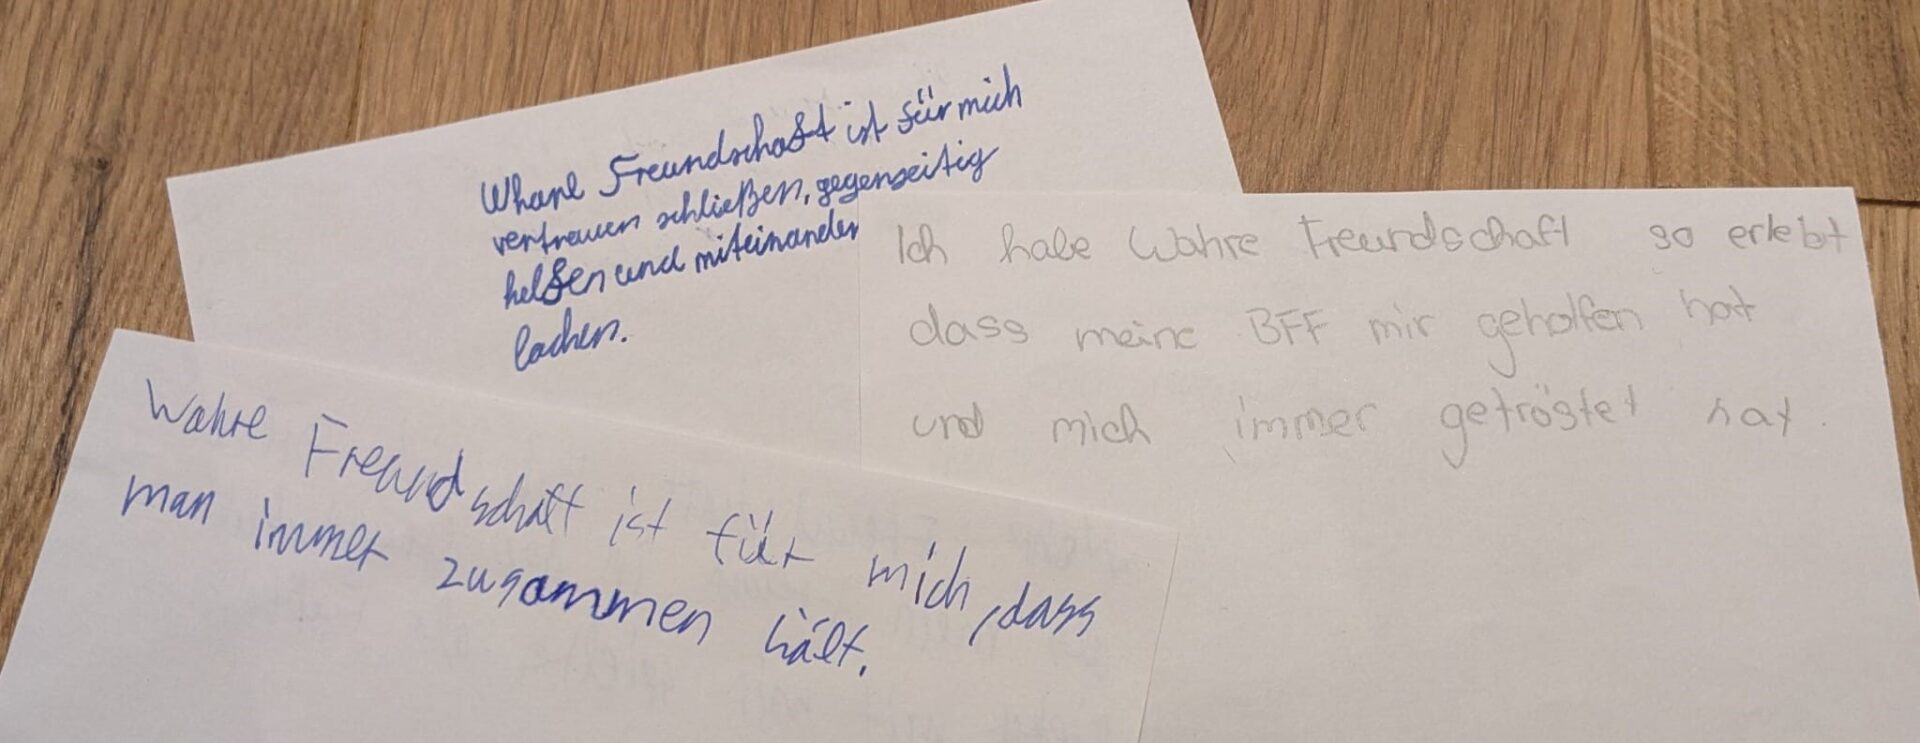 Whare Freundschaft ist für mich
vertrauen schließen, gegenseitig
helfen und miteinander
lachen.
Ich habe Wahre Freundschaft so erlebt
dass meine BFF mir geholfen hat
und mich immer getröstet hat.
Wahre Freundschaft ist für mich, dass
man immer zusammen hält.